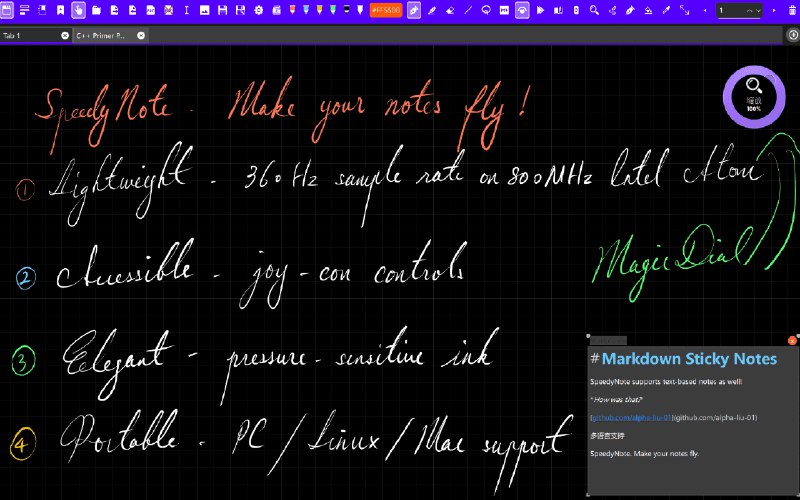 #FF5500
1
Tab 1
C++ Primer P...
SpeedyNote - Make your notes fly!
缩放
100%
① Lightweight - 360Hz sample rate on 800MHz Intel Atom
② Accessible - joy-con controls
MagicDial
③ Elegant - pressure-sensitive ink
④ Portable - PC / Linux / Mac support
# Markdown Sticky Notes
SpeedyNote supports text-based notes as well!
*How was that?*
[github.com/alpha-liu-01](github.com/alpha-liu-01)
多语言支持
SpeedyNote. Make your notes fly.